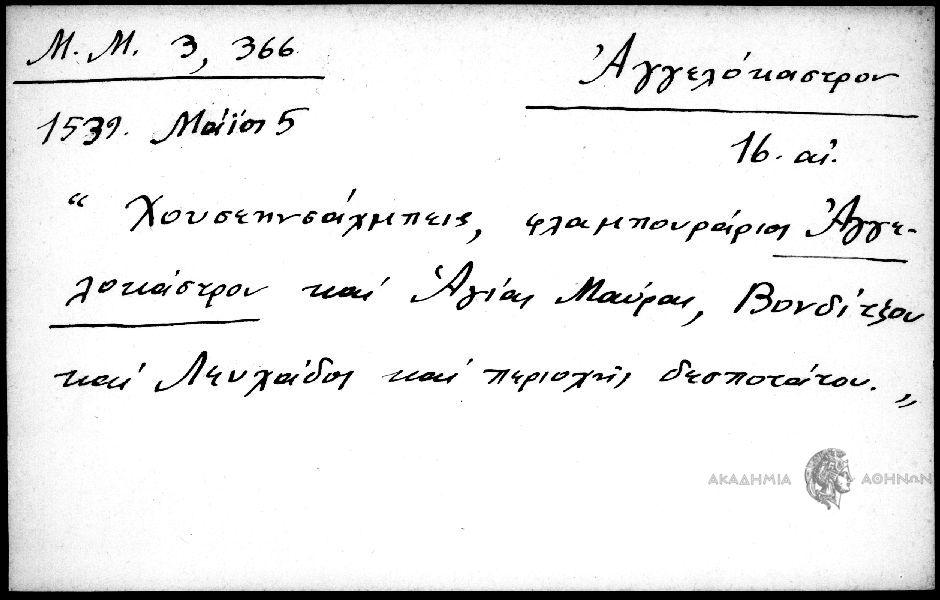 Μ. Μ. 3, 366
Ἀγγελόκαστρον
1539. Μάϊος 5
16. αἰ.
“ Χουσεηνσάχμπεις, φλαμπουράριος Ἀγγε-
λοκάστρου καί Ἁγίας Μαύρας, Βονδίτζου
καί Λευχάδος καί περιοχῆς δεσποτάτου. „
ΑΚΑΔΗΜΙΑ ΑΘΗΝΩΝ